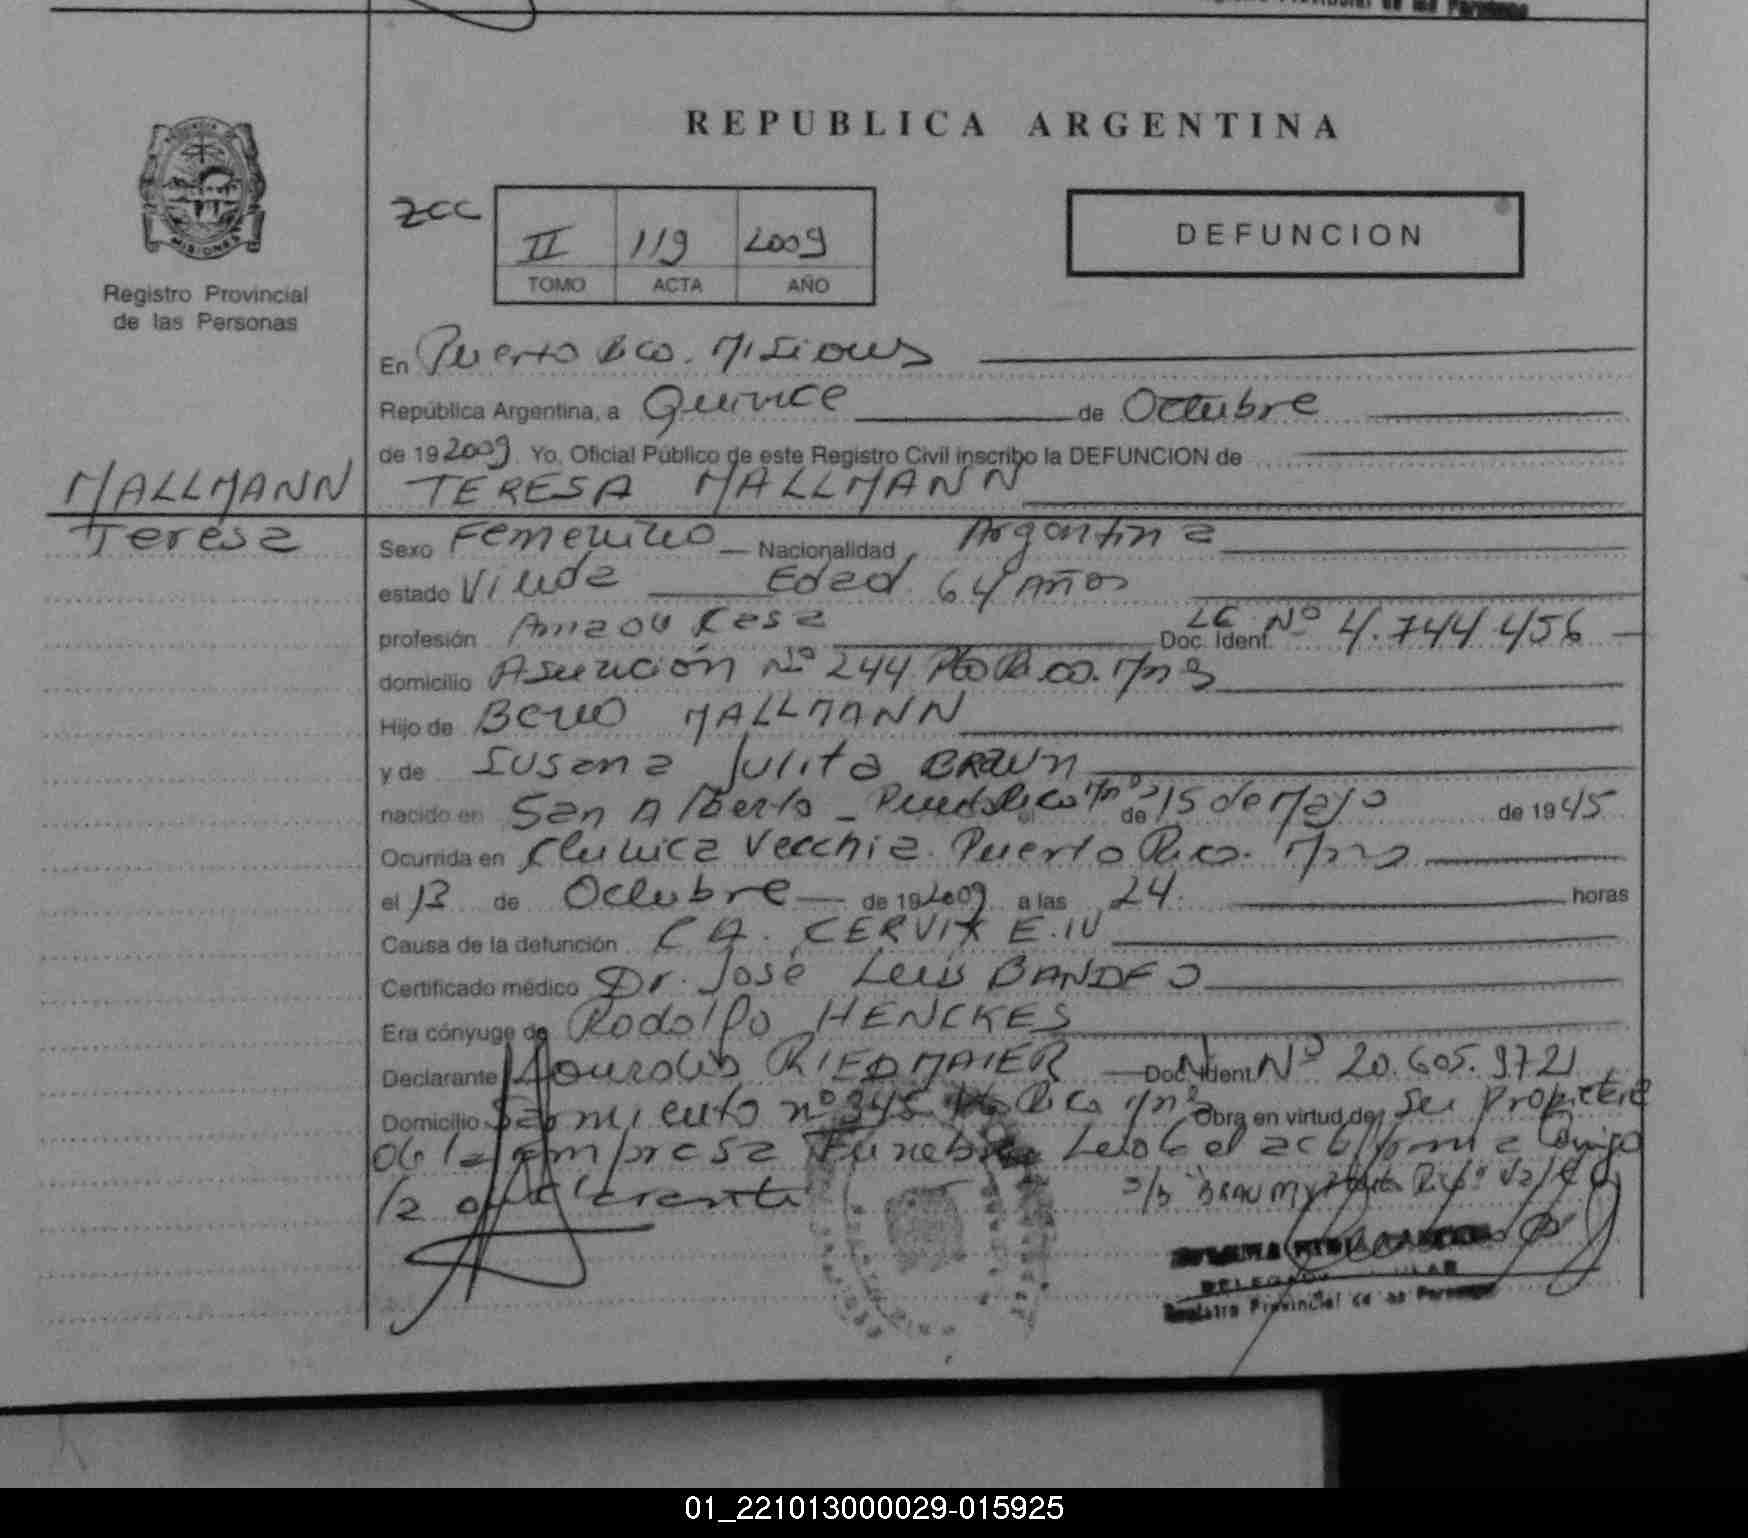 REPUBLICA ARGENTINA
MISIONES
Registro Provincial
de las Personas
zcc
II 119 2009
TOMO ACTA AÑO
DEFUNCION
En Puerto Rico. Misiones
República Argentina, a Quince de Octubre
de 19 2009 Yo, Oficial Público de este Registro Civil inscribo la DEFUNCION de
MALLMANN
Teresa
TERESA MALLMANN
Sexo Femenino Nacionalidad Argentina
estado Viuda Edad 64 Años
profesión Ama de Casa Doc. Ident. LC Nº 4.744.456
domicilio Asunción Nº 244 Pto Rico. Mns
Hijo de Beno MALLMANN
y de Susana Julita BRAUN
nacido en San Alberto - Puerto Rico Mns el 15 de Mayo de 1945
Ocurrida en Clinica Vecchia. Puerto Rico. Mns
el 13 de Octubre de 19 2009 a las 24 horas
Causa de la defunción CA. CERVIX E.IV
Certificado médico Dr. José Luis BANDEO
Era cónyuge de Rodolfo HENCKES
Declarante Lourdes RIEDMAIER Doc. Ident. Nº 20.605.972
Domicilio Sarmiento nº 345 Pto Rico Mns Obra en virtud de Ser Propietaria
de la empresa Funebre Leida el acta firma Conmigo
la declarante
DELEGADA TITULAR
Registro Provincial de las Personas
01_221013000029-015925